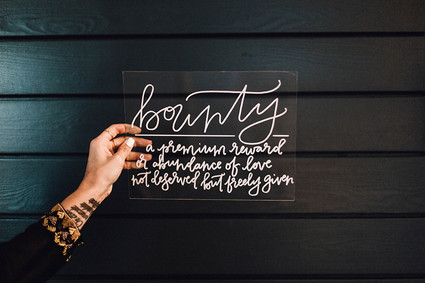 bounty
a premium reward
or abundance of love
not deserved but freely given